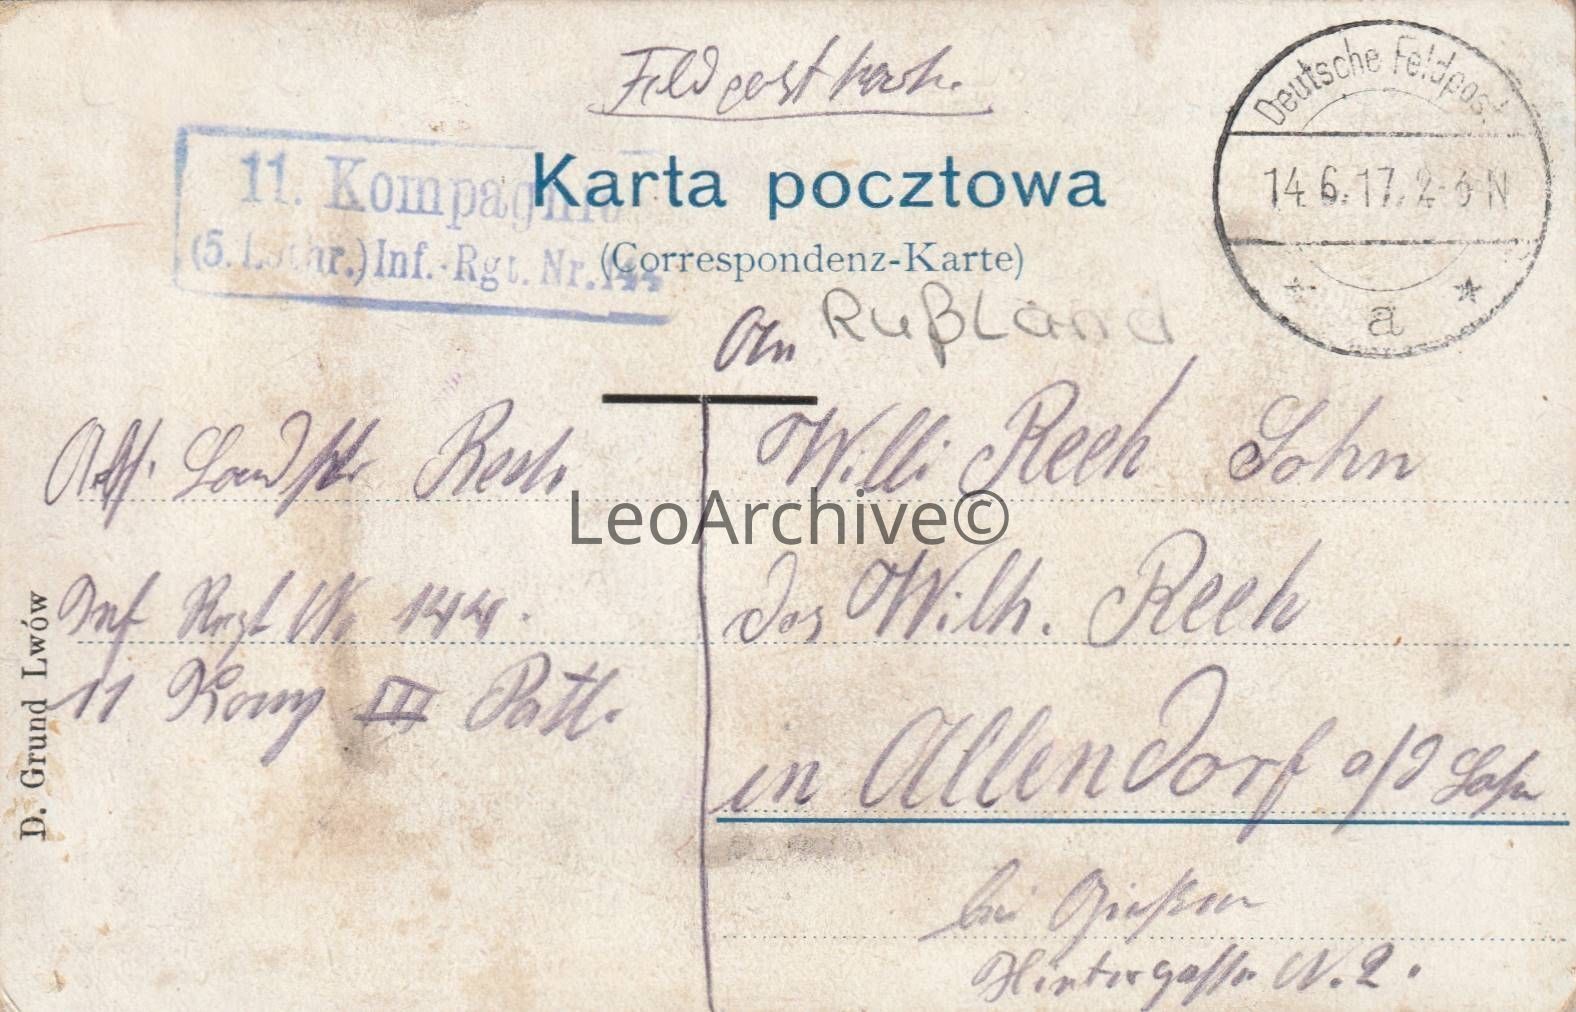 Feldpostkarte.
Deutsche Feldpost
14.6.17. 2-6 N
* a *
11. Kompagnie
(5. Lothr.) Inf.-Rgt. Nr. 144
Karta pocztowa
(Correspondenz-Karte)
An
Rußland
Abs. Landstr. Reeh
Inf Regt Nr 144.
11 Komp III Batl.
Willi Reeh Sohn
des Wilh. Reeh
in Allendorf a/d Lahn
bei Gießen
Hintergasse N. 2.
D. Grund Lwów
LeoArchive©